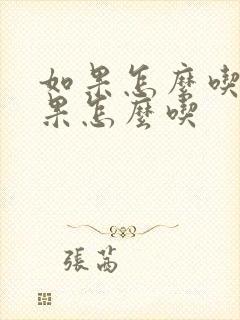 如果怎麼喫
果怎麼喫
張茜